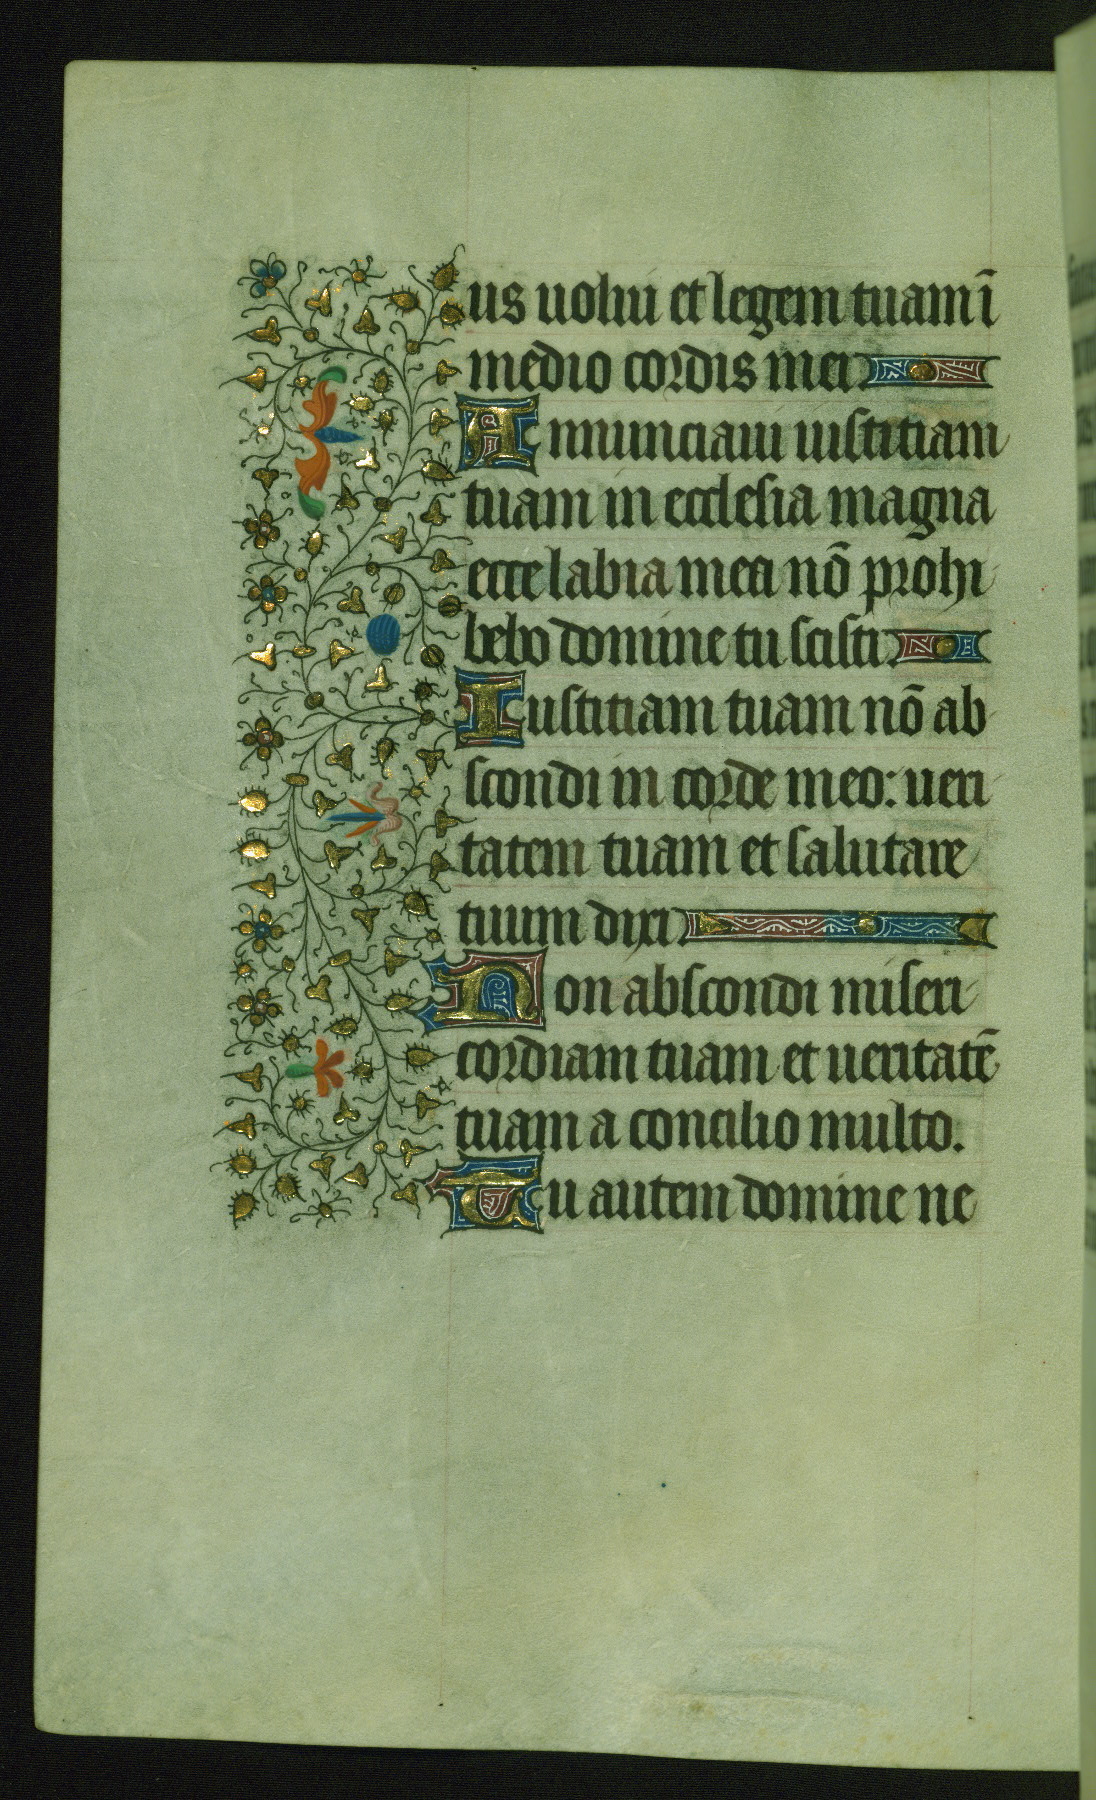 us uolui et legem tuam ī
medio cordis mei
Annunciaui iusticiam
tuam in ecclesia magna
ecce labia mea nō prohi
bebo domine tu scisti
Iustitiam tuam nō ab
scondi in corde meo: ueri
tatem tuam et salutare
tuum dixi
Non abscondi miseri
cordiam tuam et ueritatē
tuam a concilio multo.
Tu autem domine ne